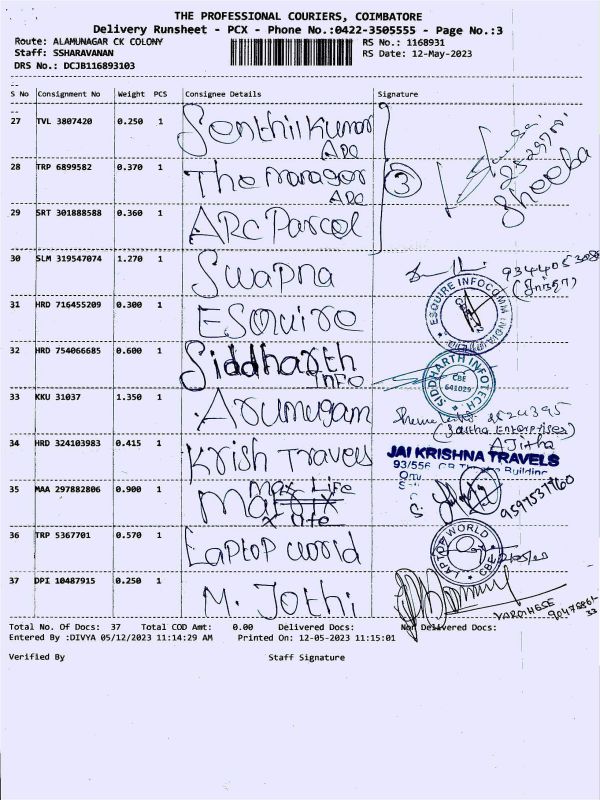 THE PROFESSIONAL COURIERS, COIMBATORE
Delivery Runsheet - PCX - Phone No.:0422-3505555 - Page No.:3
Route: ALAMUNAGAR CK COLONY RS No.: 1168931
Staff: SSHARAVANAN RS Date: 12-May-2023
DRS No.: DCJB116893103
S No Consignment No Weight PCS Consignee Details Signature
27 TVL 3807420 0.250 1 Senthilkumar
ARC
28 TRP 6899582 0.370 1 The Manager 3
ARC
Sheeba
29 SRT 301888588 0.360 1 ARC Parcel
30 SLM 319547074 1.270 1 Swapna
31 HRD 716455209 0.300 1 ESquire ESQUIRE INFOCOMM INDIA
32 HRD 754066685 0.600 1 Siddharth SIDDHARTH INFOTECH
Info CBE
641029
33 KKU 31037 1.350 1 Arumugam
Ajitha
34 HRD 324103983 0.415 1 Krish Travels JAI KRISHNA TRAVELS
93/556
35 MAA 297882806 0.900 1 Max Life
9597537760
36 TRP 5367701 0.570 1 Laptop world LAPTOP WORLD CBE
37 DPI 10487915 0.250 1 M. Jothi
Total No. Of Docs: 37 Total COD Amt: 0.00 Delivered Docs: Non Delivered Docs:
Entered By :DIVYA 05/12/2023 11:14:29 AM Printed On: 12-05-2023 11:15:01
Verified By Staff Signature